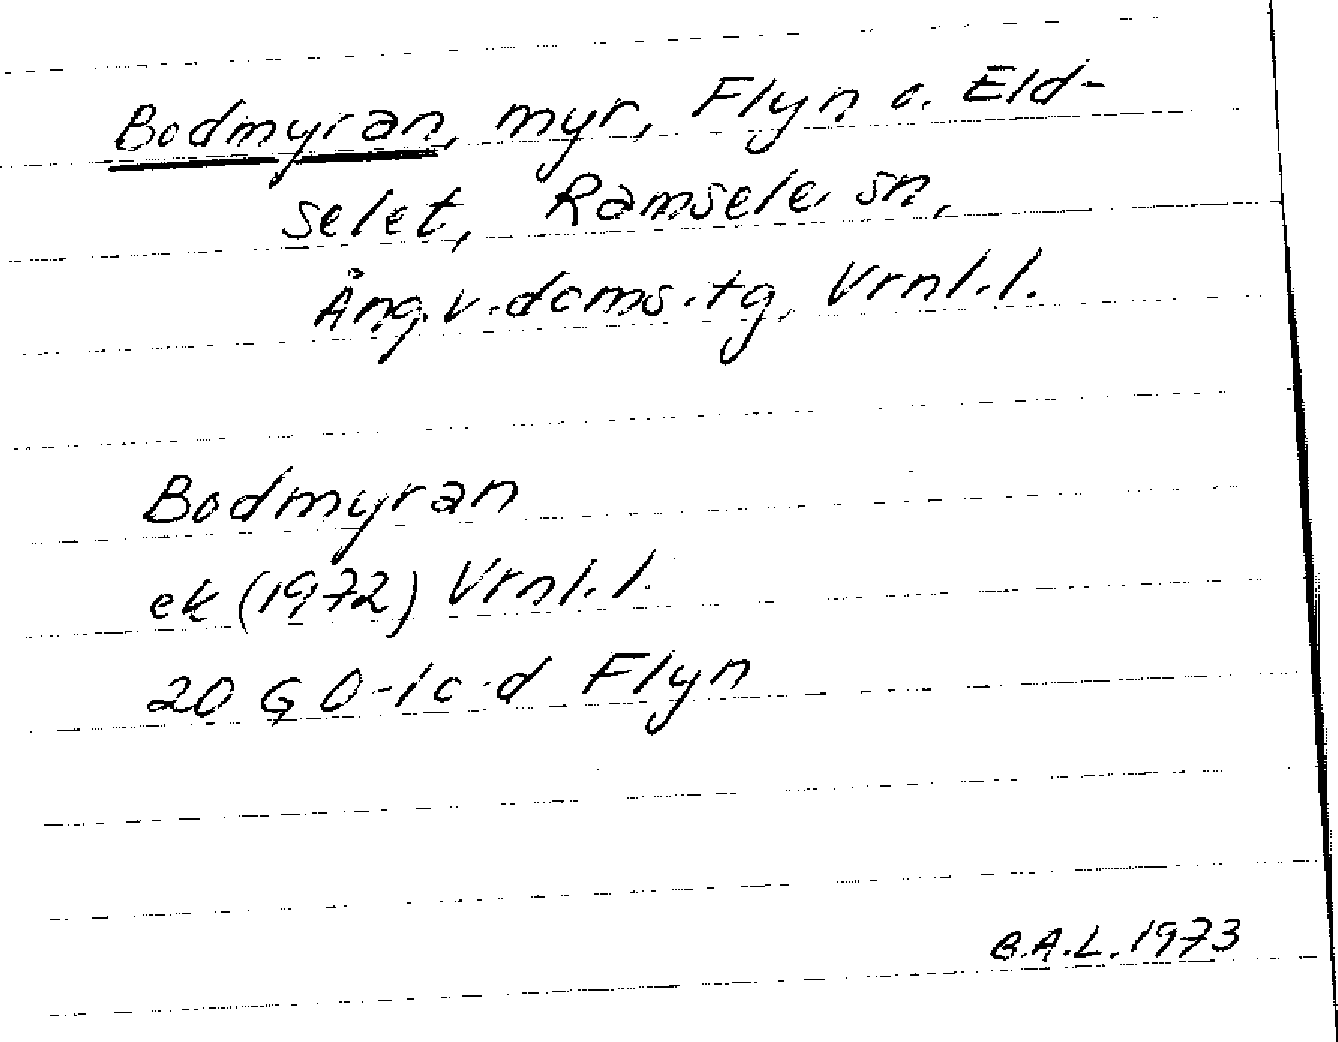 Bodmyran, myr, Flyn o. Eld-
selet, Ramsele sn,
Ång.v.doms.tg, Vrnl.l.
Bodmyran
ek (1972) Vrnl.l.
20 G 0-1c-d Flyn
B.A.L. 1973